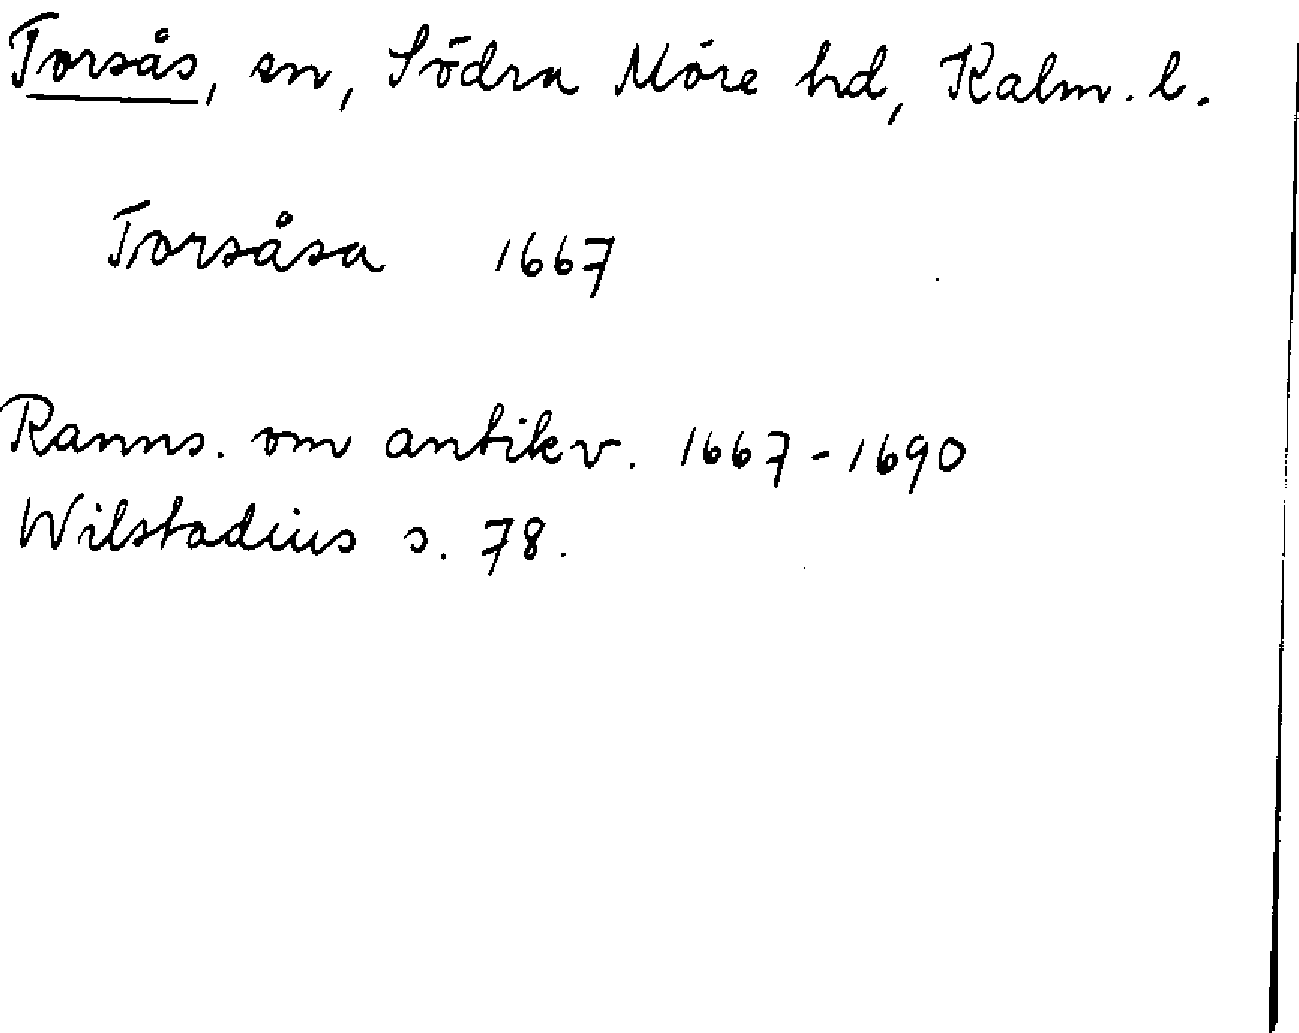 Torsås, sn, Södra Möre hd, Kalm. l.
Torsåsa 1667
Ranns. om antikv. 1667-1690
Wilstadius s. 78.